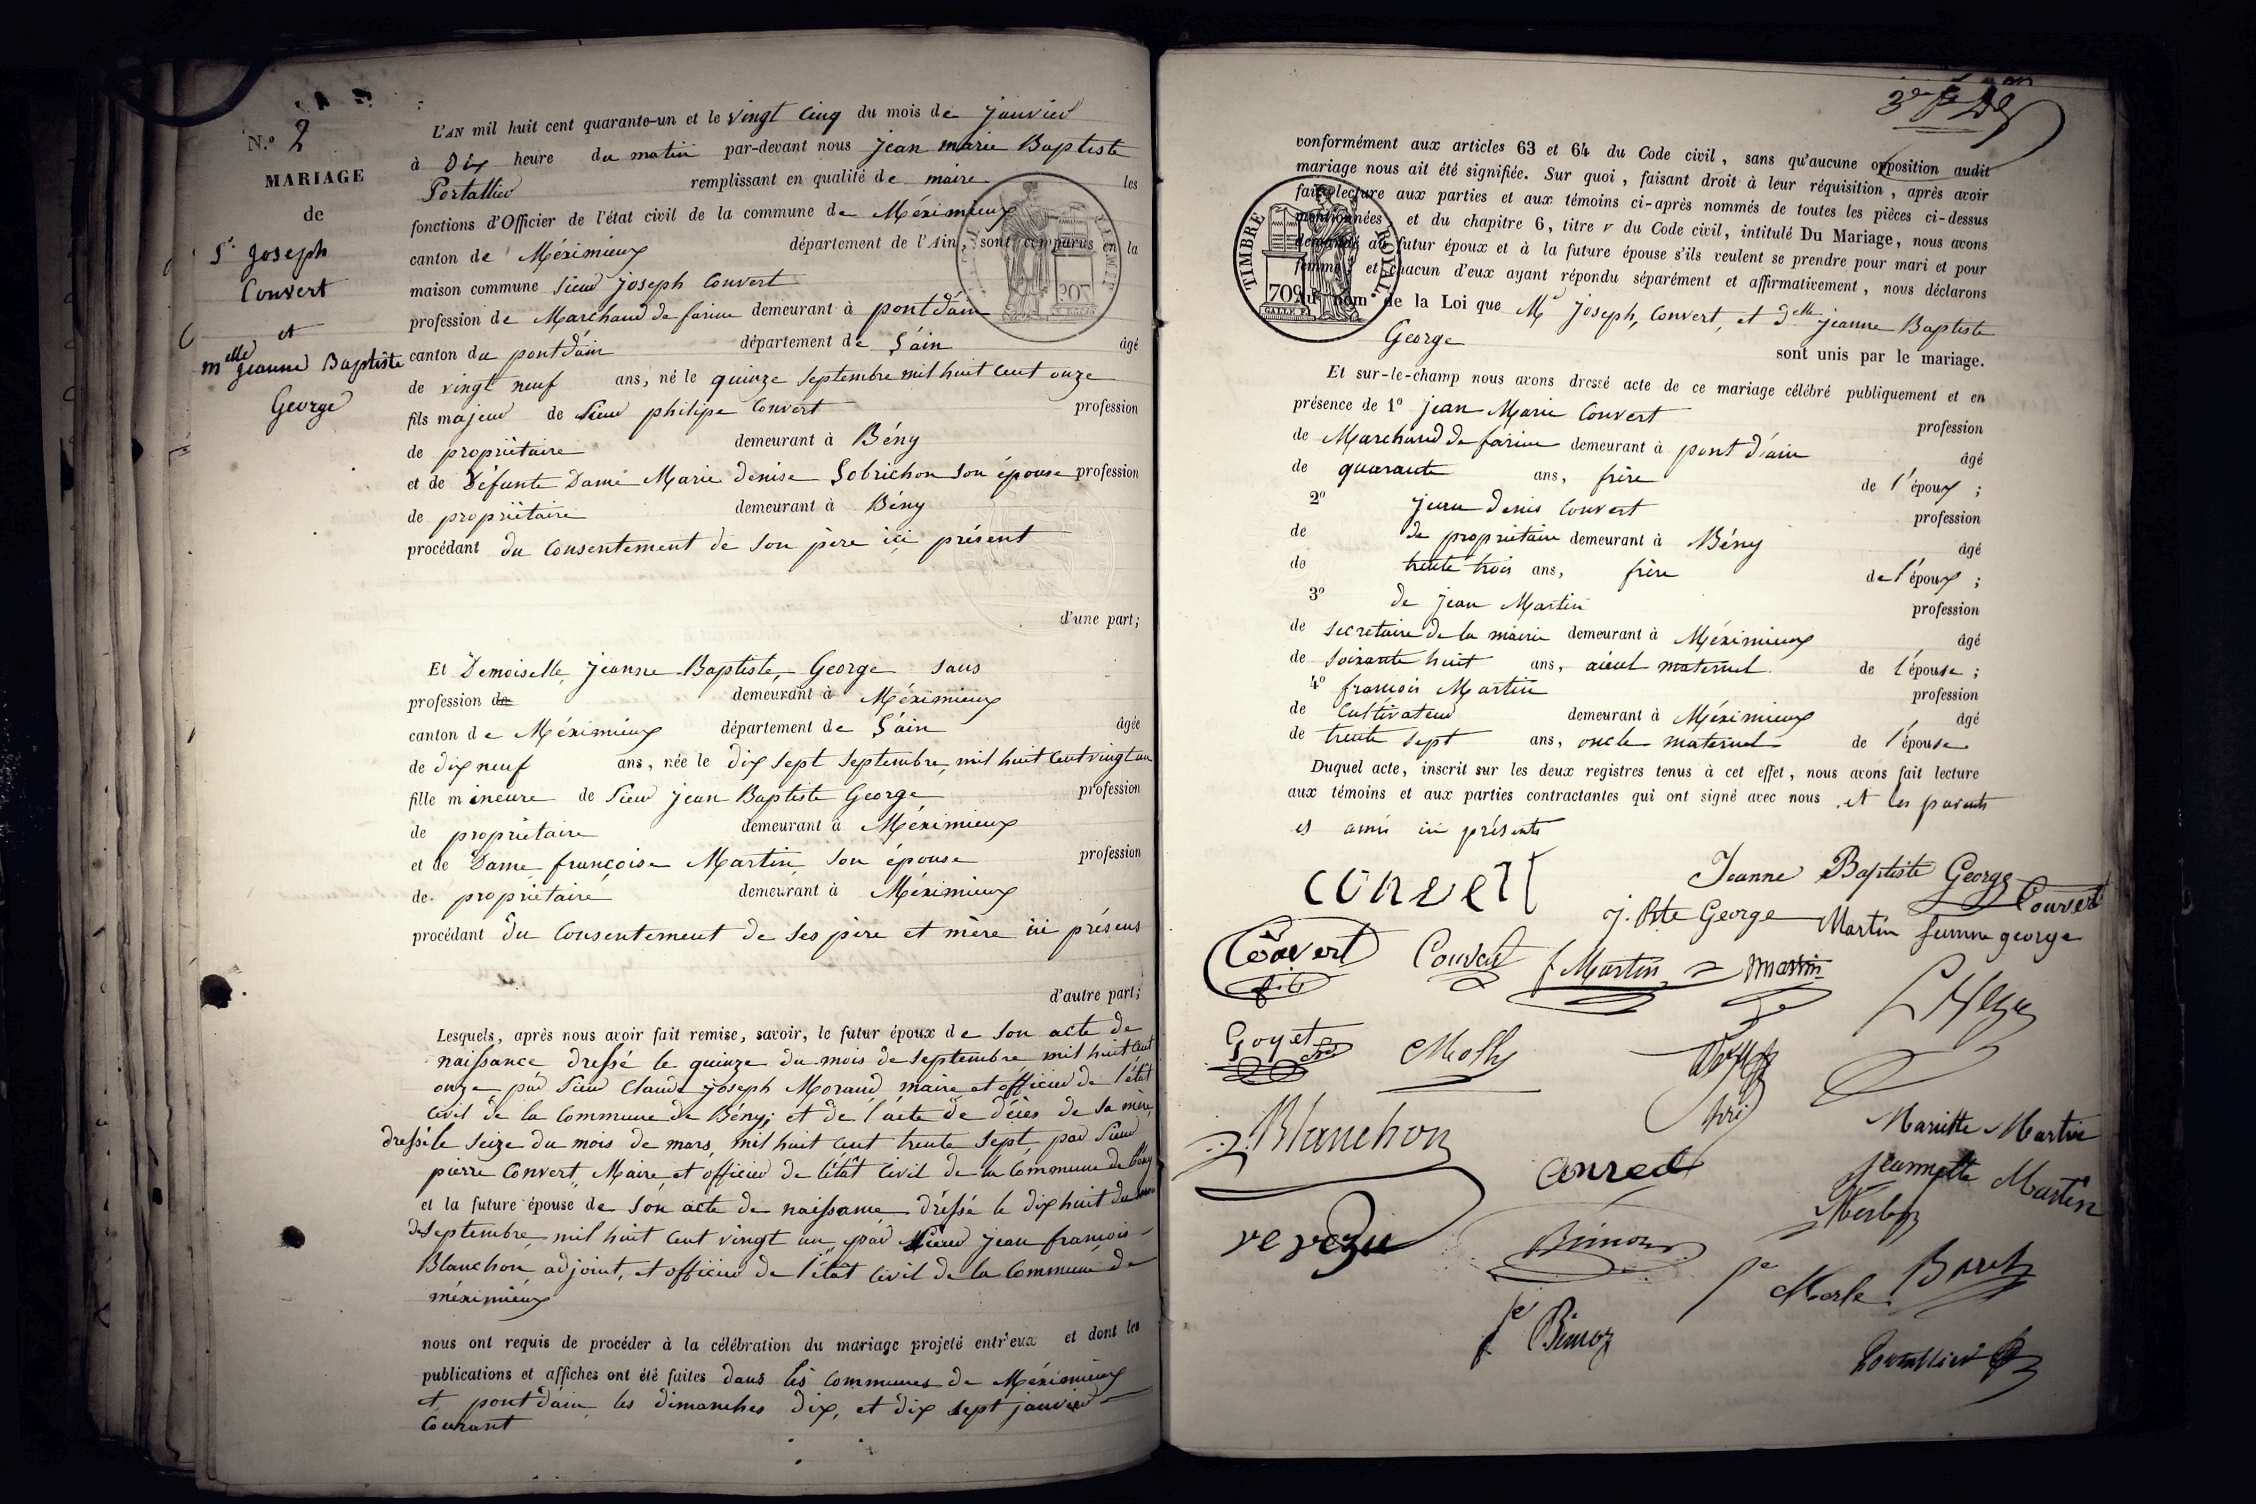 N.º 2
MARIAGE
de
Sr. Joseph
Convert
et
Melle jeanne Baptiste
George
L'AN mil huit cent quarante-un et le vingt cinq du mois de janvier
à Dix heure du matin par-devant nous jean marie Baptiste
Portallier remplissant en qualité de maire les
fonctions d'Officier de l'état civil de la commune de Méximieux
canton de Méximieux département de l'Ain, sont comparus en la
maison commune Sieur joseph Convert
profession de Marchand de farine demeurant à pont d'ain
canton du pont d'ain département de L'ain âgé
de vingt neuf ans, né le quinze septembre mil huit cent onze
fils majeur de Sieur philipe Convert profession
de propriétaire demeurant à Bény
et de Défunte Dame Marie denise Sobrichon son épouse profession
de propriétaire demeurant à Bény
procédant du Consentement de son père ici présent
d'une part;
Et Demoiselle, jeanne Baptiste, George sans
profession de demeurant à Méximieux
canton de Méximieux département de L'ain âgée
de dix neuf ans, née le dix sept septembre, mil huit cent vingt un
fille mineure de Sieur jean Baptiste George profession
de propriétaire demeurant à Méximieux
et de Dame françoise Martin son épouse profession
de propriétaire demeurant à Méximieux
procédant du Consentement de ses père et mère ici présens
d'autre part;
Lesquels, après nous avoir fait remise, savoir, le futur époux de son acte de
naissance dressé le quinze du mois de septembre mil huit cent
onze par Sieur Claude joseph Morand maire et officier de l'état
Civil de la Commune de Bény; et de l'acte de décès de sa mère,
dressé le seize du mois de mars mil huit cent trente sept par Sieur
pierre Convert, Maire et officier de l'état Civil de la Commune de Bény
et la future épouse de son acte de naissance dréssé le dix huit du mois
de septembre mil huit cent vingt un par Sieur jean françois
Blanchon adjoint, et officier de l'état Civil de la Commune de
méximieux
nous ont requis de procéder à la célébration du mariage projeté entr'eux et dont les
publications et affiches ont été faites dans les communes de Méximieux
et pont d'ain les dimanches dix, et dix sept janvier
Courant
conformément aux articles 63 et 64 du Code civil, sans qu'aucune opposition audit
mariage nous ait été signifiée. Sur quoi, faisant droit à leur réquisition, après avoir
fait lecture aux parties et aux témoins ci-après nommés de toutes les pièces ci-dessus
mentionnées et du chapitre 6, titre v du Code civil, intitulé Du Mariage, nous avons
demandé au futur époux et à la future épouse s'ils veulent se prendre pour mari et pour
femme; et chacun d'eux ayant répondu séparément et affirmativement, nous déclarons
TIMBRE ROYAL.
70c
Au nom de la Loi que Mr joseph, Convert, et Delle jeanne Baptiste
George
sont unis par le mariage.
Et sur-le-champ nous avons dressé acte de ce mariage célébré publiquement et en
présence de 1º jean Marie Convert profession
de Marchand de farine demeurant à pont d'ain âgé
de quarante ans, frère de l'époux;
2º jean denis Convert profession
de de propriétaire demeurant à Bény âgé
de trente trois ans, frère de l'époux;
3º de jean Martin profession
de secretaire de la mairie demeurant à Méximieux âgé
de soixante huit ans, aïeul maternel de l'épouse;
4º françois Martin profession
de Cultivateur demeurant à Méximieux âgé
de trente sept ans, oncle maternel de l'épouse
Duquel acte, inscrit sur les deux registres tenus à cet effet, nous avons fait lecture
aux témoins et aux parties contractantes qui ont signé avec nous, et les parents
et amis ici présents
Convert
Jeanne Baptiste George
j. Bte George
Convert
Martin femme george
Convert fils
Convert
f Martin
Martin
Goyet
J. Blanchon
Mariette Martin
Jeannette Martin
Conred
Merle
Portallier